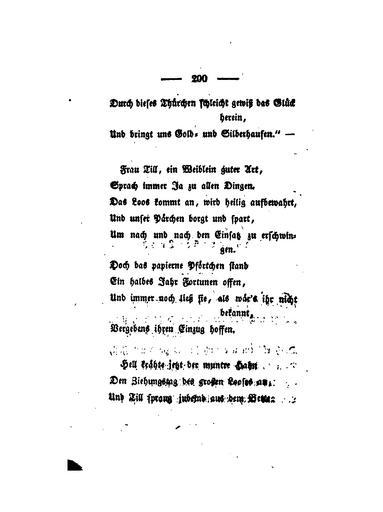 — 200 —
Durch dieses Thürchen schleicht gewiß das Glück
herein,
Und bringt uns Gold- und Silberhaufen.“ —
Frau Till, ein Weiblein guter Art,
Sprach immer Ja zu allen Dingen.
Das Loos kommt an, wird heilig aufbewahrt,
Und unser Pärchen borgt und spart,
Um nach und nach den Einsatz zu erschwin-
gen.
Doch das papierne Pförtchen stand
Ein halbes Jahr Fortunen offen,
Und immer noch ließ sie, als wär's ihr nicht
bekannt,
Vergebens ihren Einzug hoffen.
Hell krähte jetzt der muntre Hahn
Den Ziehungstag des großen Looses an,
Und Till sprang jubelnd aus dem Bette: